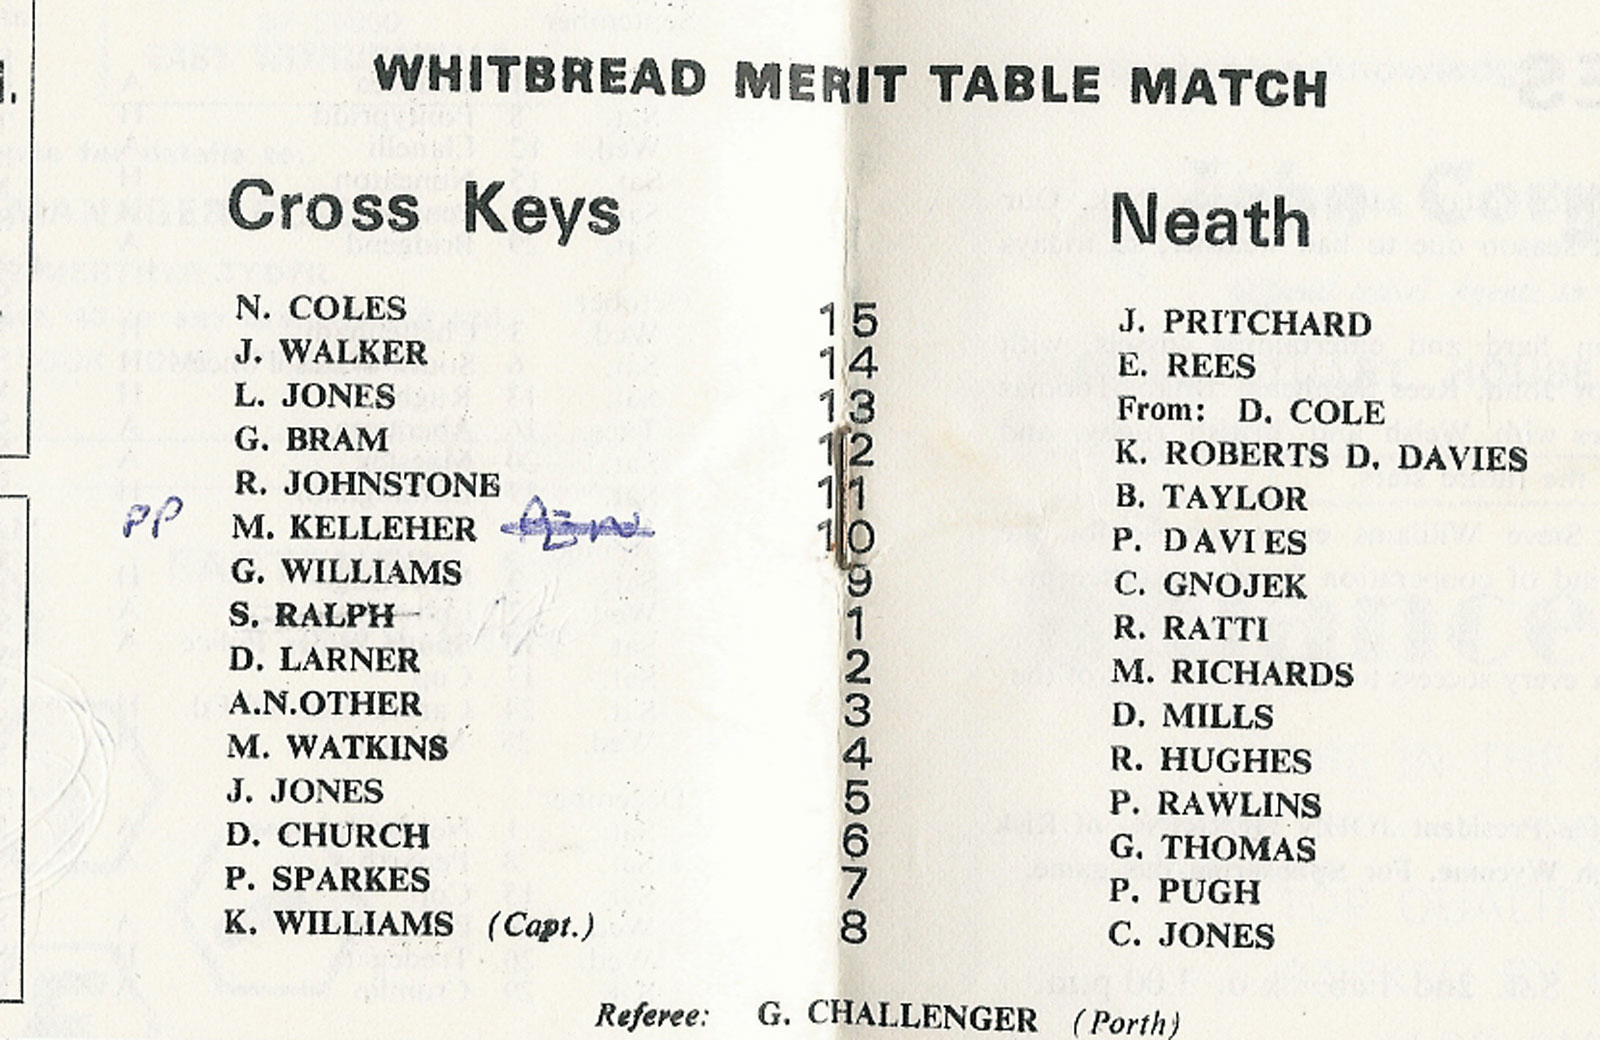 WHITBREAD MERIT TABLE MATCH
Cross Keys Neath
N. COLES 15 J. PRITCHARD
J. WALKER 14 E. REES
L. JONES 13 From: D. COLE
G. BRAM 12 K. ROBERTS D. DAVIES
R. JOHNSTONE 11 B. TAYLOR
PP M. KELLEHER 10 P. DAVIES
G. WILLIAMS 9 C. GNOJEK
S. RALPH 1 R. RATTI
D. LARNER 2 M. RICHARDS
A.N.OTHER 3 D. MILLS
M. WATKINS 4 R. HUGHES
J. JONES 5 P. RAWLINS
D. CHURCH 6 G. THOMAS
P. SPARKES 7 P. PUGH
K. WILLIAMS (Capt.) 8 C. JONES
Referee: G. CHALLENGER (Porth)